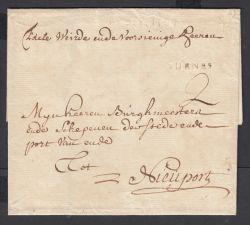 Edele Weirde ende Voorsienige heeren
FURNES
2
Myn heeren Burghmeesters
ende Schepenen der stede ende
port van ende
Tot
Nieuport